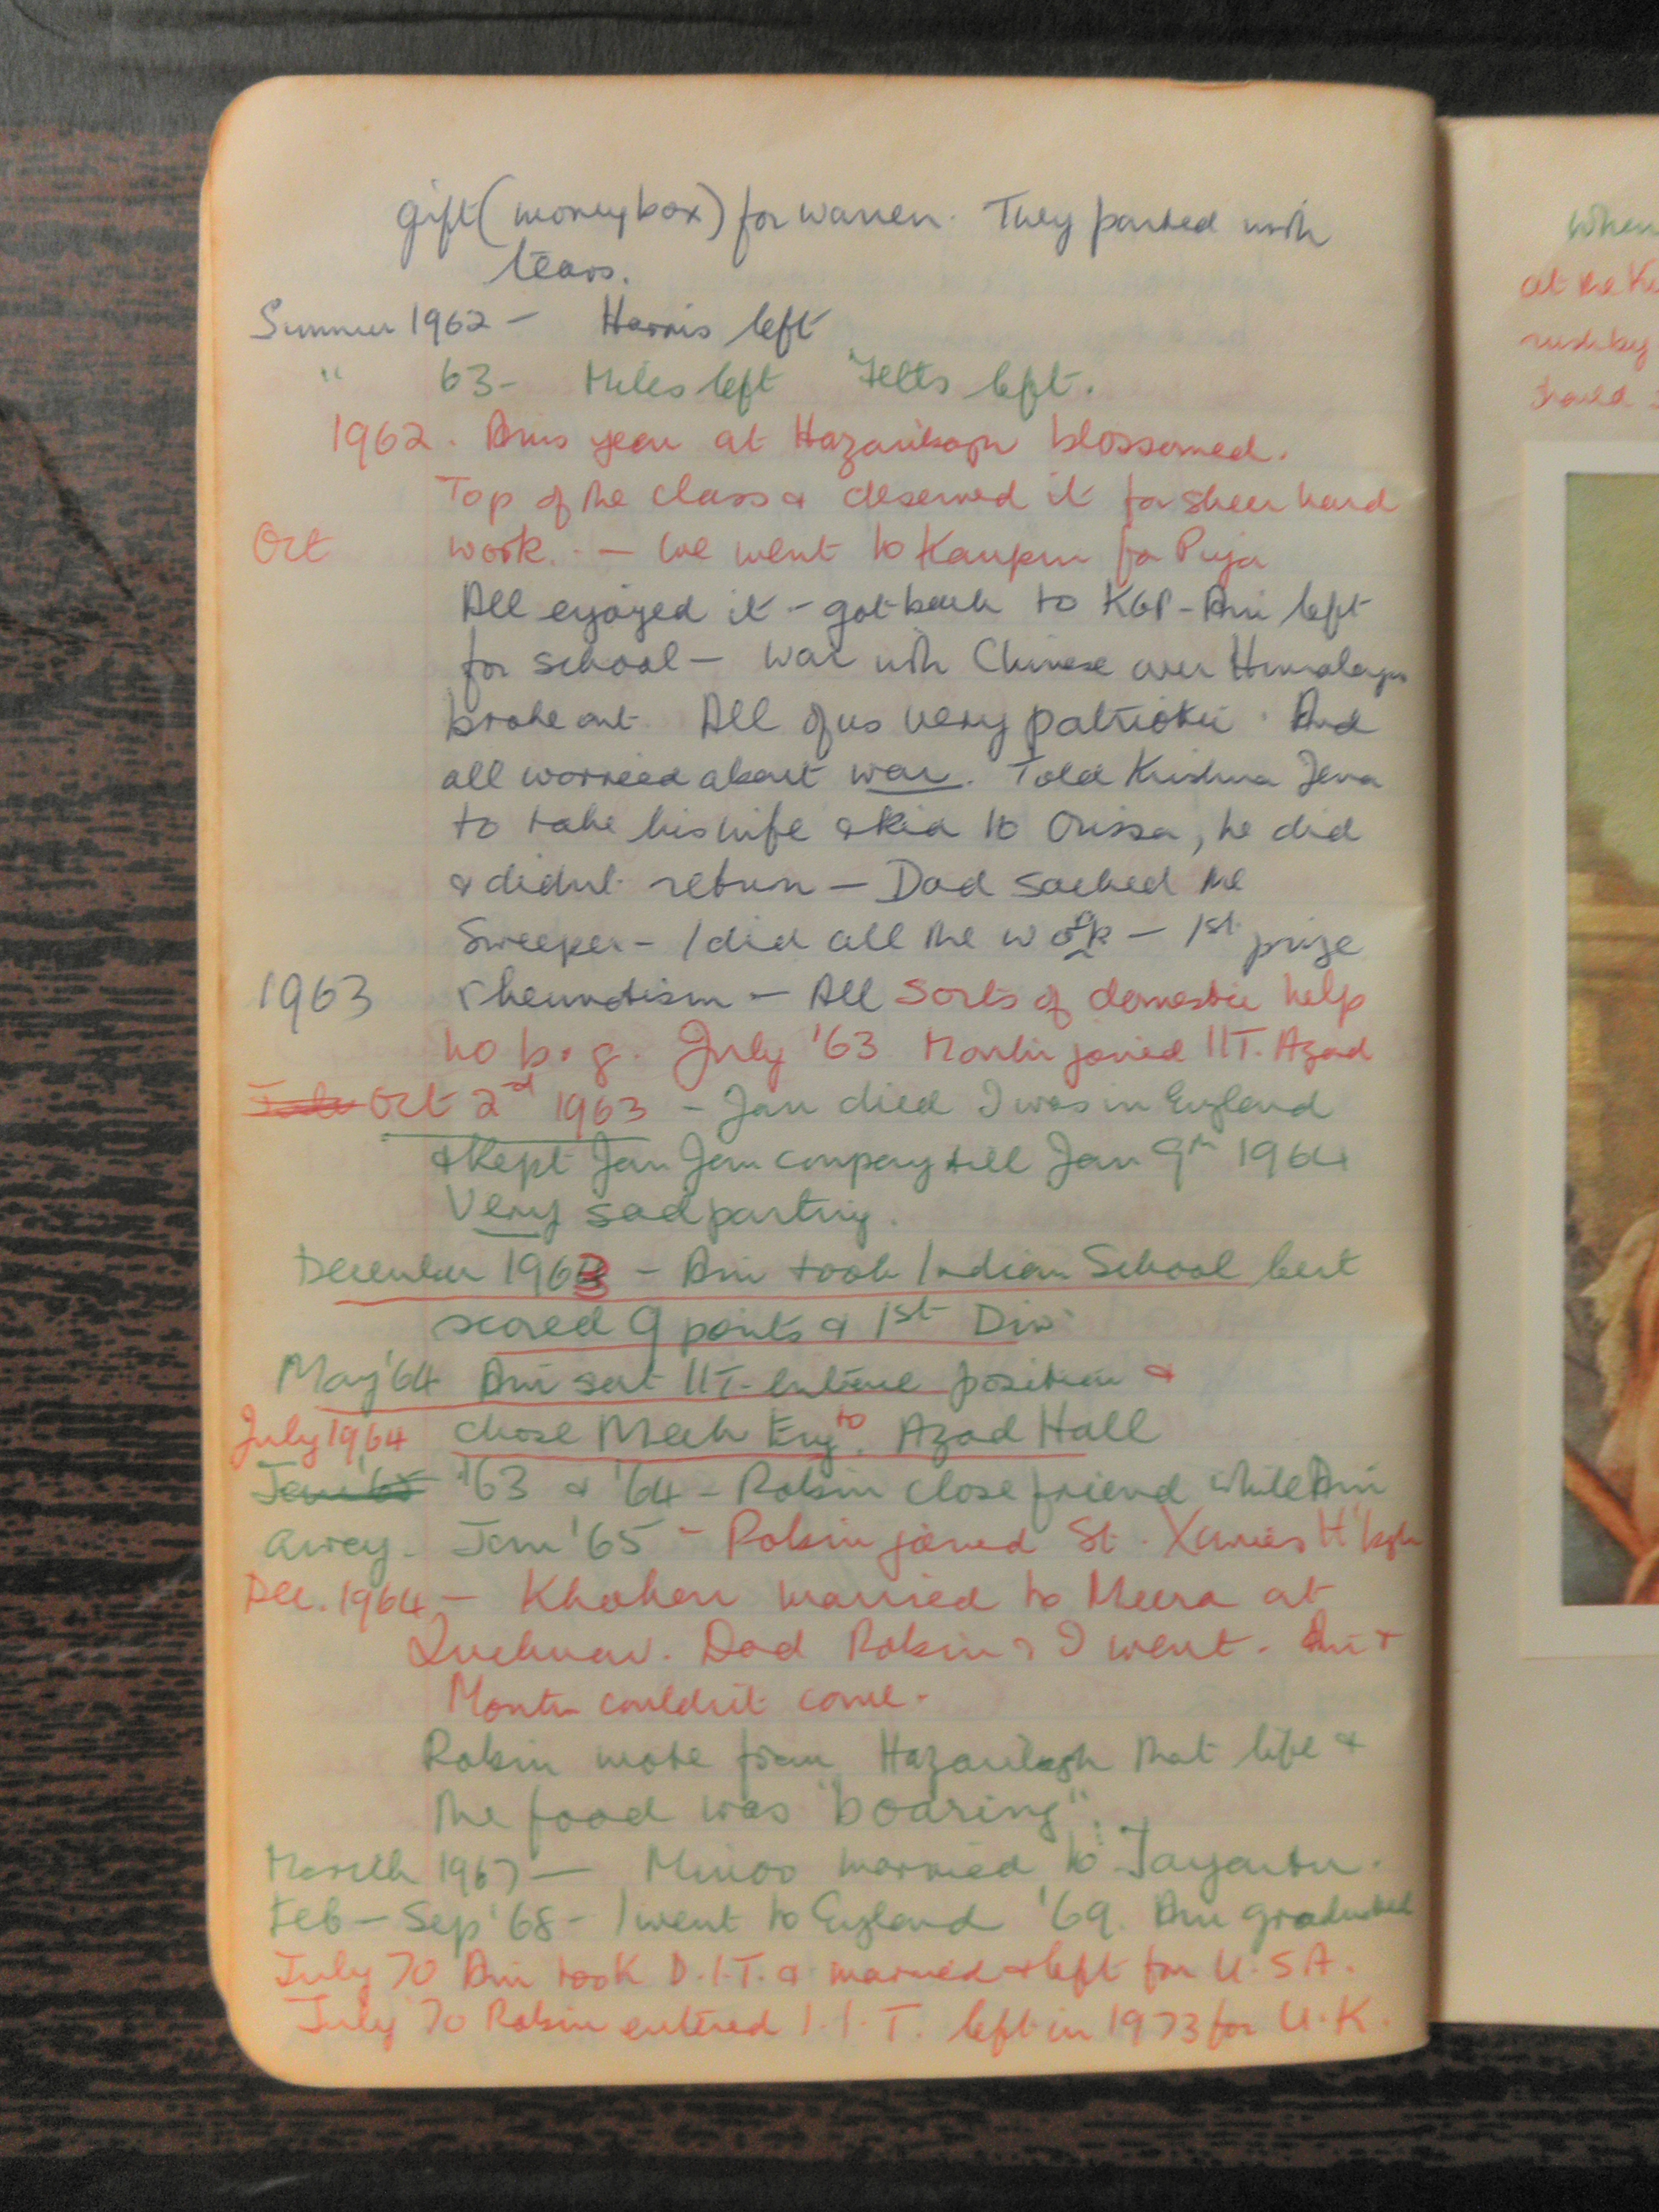 gift (moneybox) for Warren. They parted with
tears.
Summer 1962 - Harris left
" 63 - Miles left Felts left.
1962. Ani's year at Hazaribagh blossomed.
Top of the class & deserved it for sheer hard
Oct work. - We went to Kanpur for Puja
All enjoyed it - got back to KGP - Ani left
for school - War with Chinese over Himalayas
broke out. All of us very patriotic. And
all worried about war. Told Krishna Jena
to take his wife & kid to Orissa, he did
& didn't return - Dad sacked the
Sweeper - I did all the work - 1st prize
1963 rheumatism - All sorts of domestic help
no b. g. July '63 joined IIT. Azad
Oct 2nd 1963 - Jan died I was in England
& kept Jan Jan company till Jan 9th 1964
Very sad parting.
December 1963 - Ani took Indian School Cert
scored 9 points & 1st Div.
May '64 Ani sat IIT position &
July 1964 chose Mech Eng. to Azad Hall
Jan '65 '63 & '64 - Robin close friend while Ani
away. Jan '65 - Robin joined St. Xavier's H'bgh
Dec. 1964 - Khokon married to Meera at
Lucknow. Dad Robin & I went. Ani &
couldn't come.
Robin wrote from Hazaribagh that life &
the food was "boaring".
March 1967 - Minoo married to Jayanta.
Feb - Sep '68 - I went to England '69. Ani graduated
July 70 Ani took D.I.T. & married & left for U.S.A.
July 70 Robin entered I.I.T. left in 1973 for U.K.
When
at the